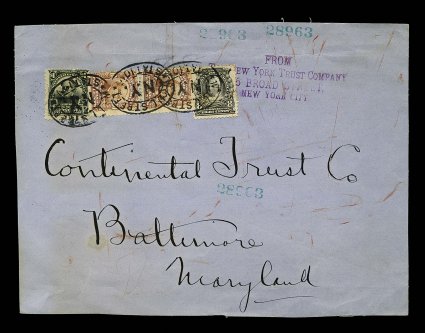 28963 28963
FROM
NEW YORK TRUST COMPANY
BROAD STREET
NEW YORK CITY
Continental Trust Co
28963
Baltimore
Maryland